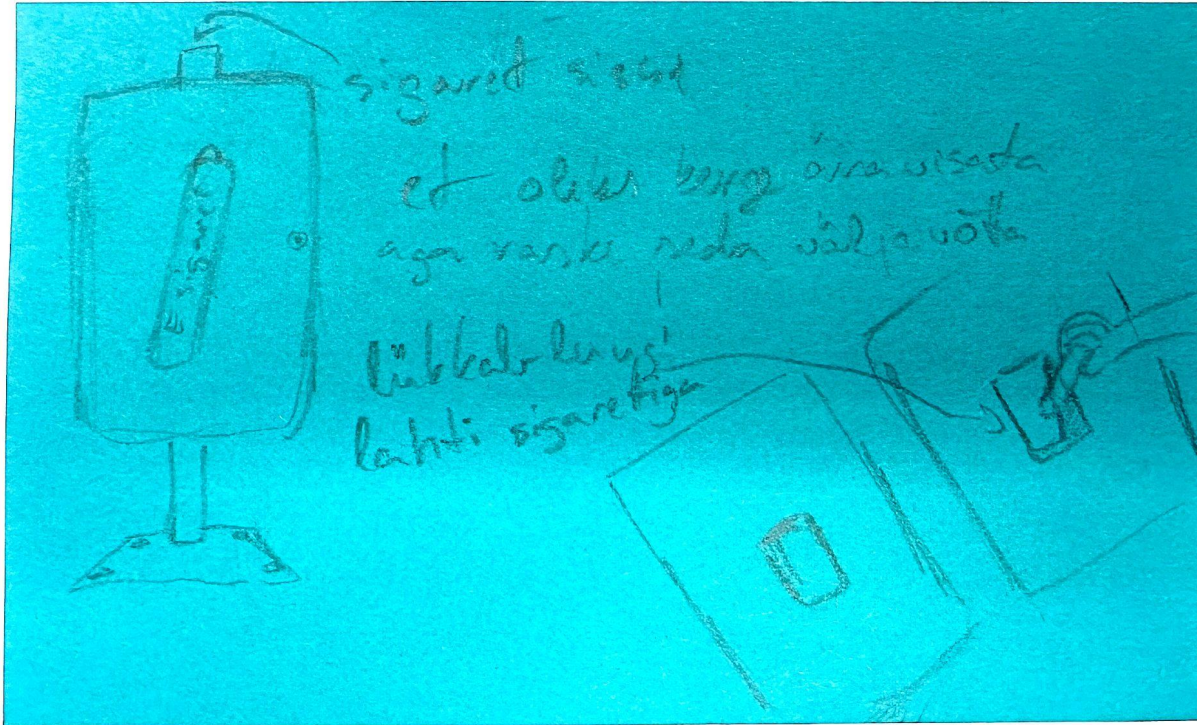 sigaret sisse
et oleks kerge ära visata
aga raske seda välja võtta
lükkab luugi
lahti sigaretiga
sigaret